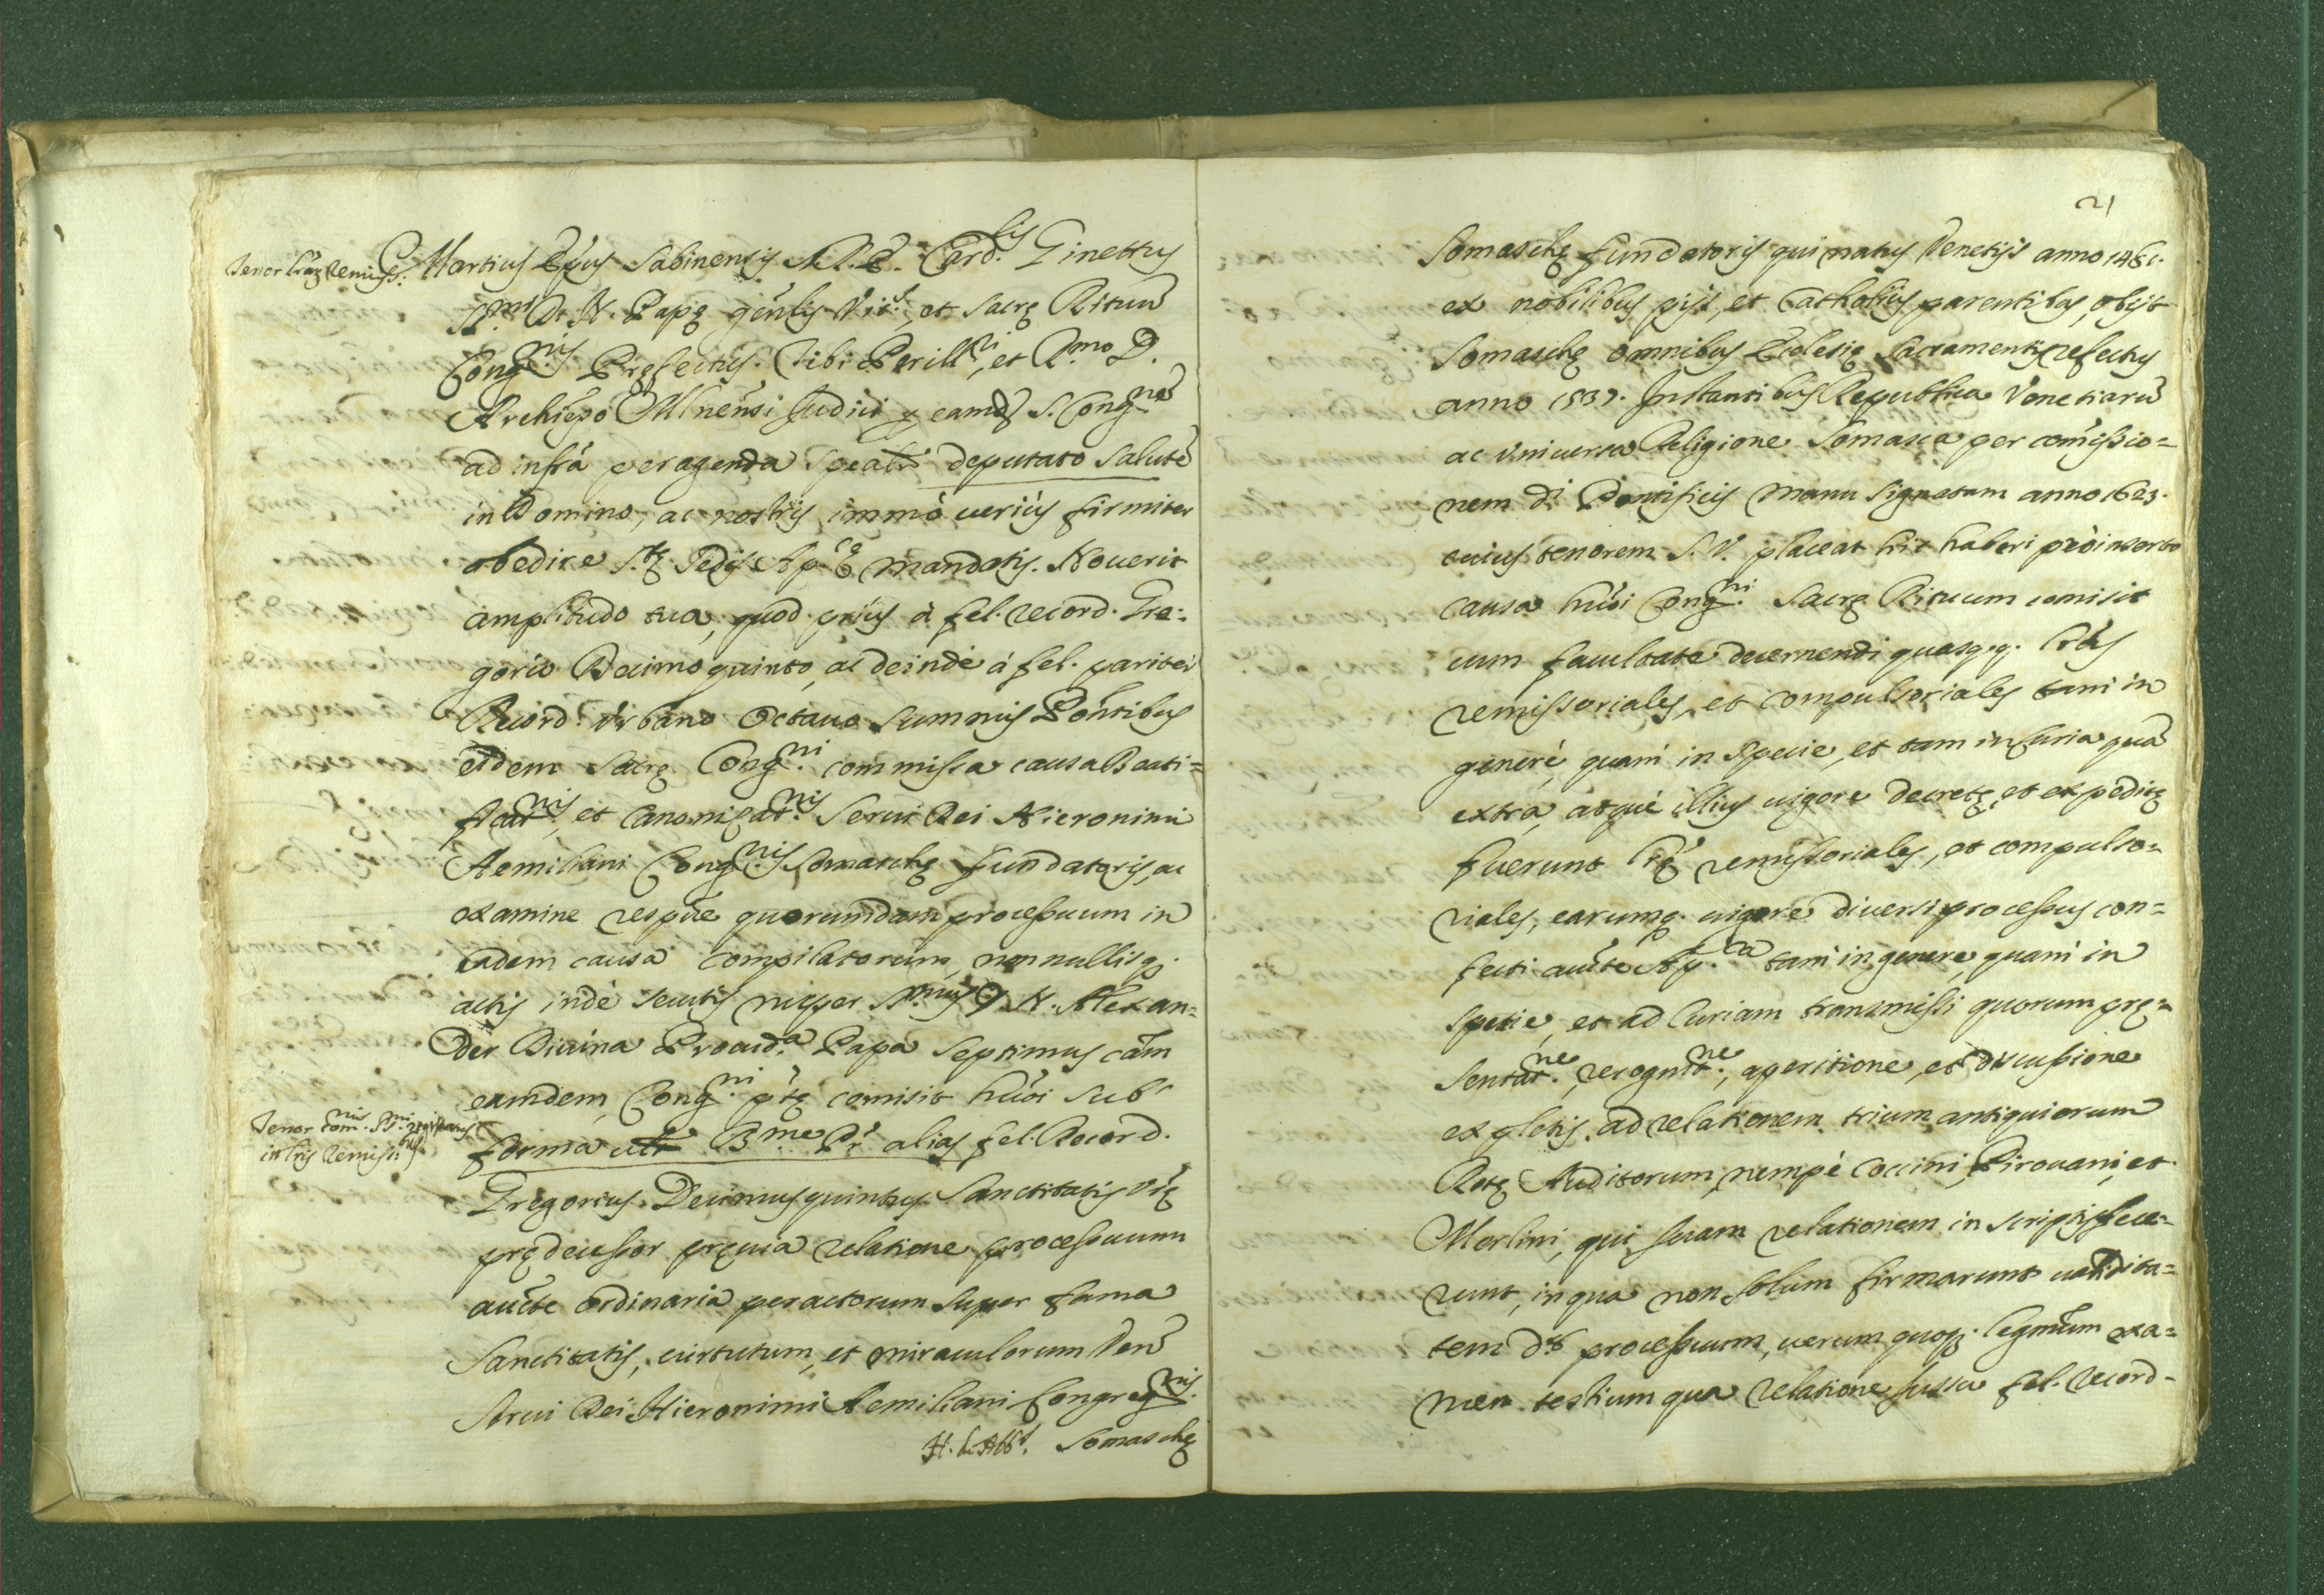 Tenor Lrãr Remiss.
Martius Epus Sabinensis S.R.E. Card.lis Ginettus
SS.mi D. N. Papę genlis Vic.s, et Sacrę Rituũ
Cong.nis Pręfectus. Tibi Perill.ri, et R.mo D.
Archiepo Mlnensi Judici p eamdẽ S. Cong.nẽ
ad infrã peragenda spealr deputato salutẽ
in Domino, ac nostris immò veriùs firmiter
obedire S.tę Sedis Ap.cę mandatis. Noverit
amplitudo tua, quod priùs à fel. record. Gre:
gorio Decimo quinto, ac deindè à fel. pariter
Record. Urbano Octavo summis Pontibus
eidem Sacrę Cong.ni commissa causa Beati=
ficat.nis, et Canonizat.nis Servi Dei Hieronimi
Aemiliani Cong.nis Somaschę fundatoris, ac
examine respve quorumdam processuum in
eadem causa compilatorum, nonnullisq.
actis indè secutis nuper SS.mus D. N. Alexan=
der Divina Provid.a Papa Septimus cãm
eamdem, Cong.ni ptę comisit huoi sub
Tenor Com.nis SS.mi registratus
in Lris Remiss.bus
forma utr B.me Pr alias fel. Record.
Gregorius Decimusquintus Sanctitatis Vrę
prędecessor pręvia relatione processuum
aucte ordinaria peractorum super fama
Sanctitatis, virtutum, et miraculorum Ven
Servi Dei Hieronimi Aemiliani Congreg.nis
H. de Abb.s Somaschę
21
Somaschę fundatoris qui natus Venetijs anno 1481.
ex nobilibus pijs, et Catholicis parentibus, obijt
Somaschę omnibus Ecclesię Sacramentis refectus
anno 1537. Instantibus Republica Venetiarũ
ac universa Religione Somasca per comissio=
nem di Pontificis manu signatam anno 1623.
cuius tenorem S.V. placeat hic haberi pro inserto
causa huoi Cong.ni Sacrę Rituum comisit
cum facultate decernendi quascq. Lras
remissoriales, et compulsoriales tam in
genere, quam in specie, et tam in Curia quã
extra, atque illius vigore decretę, et expeditę
fuerunt Lrę remissoriales, et compulso=
riales, earumq. vigore diversi processus con=
fecti aucte Ap.ca tam in genere, quam in
specie, et ad Curiam transmissi quorum prę=
sentat.ne, recognit.ne, aperitione, et discussione
expletis, ad relationem trium antiquiorum
Rotę Auditorum, nempè Coccini, Pirovani, et
Merlini, qui suam relationem in scriptis fece=
runt, in qua non solum firmarunt validita=
tem dd. processuum, verum quoq. legmũm exa=
men testium qua relatione iussu fel. record.